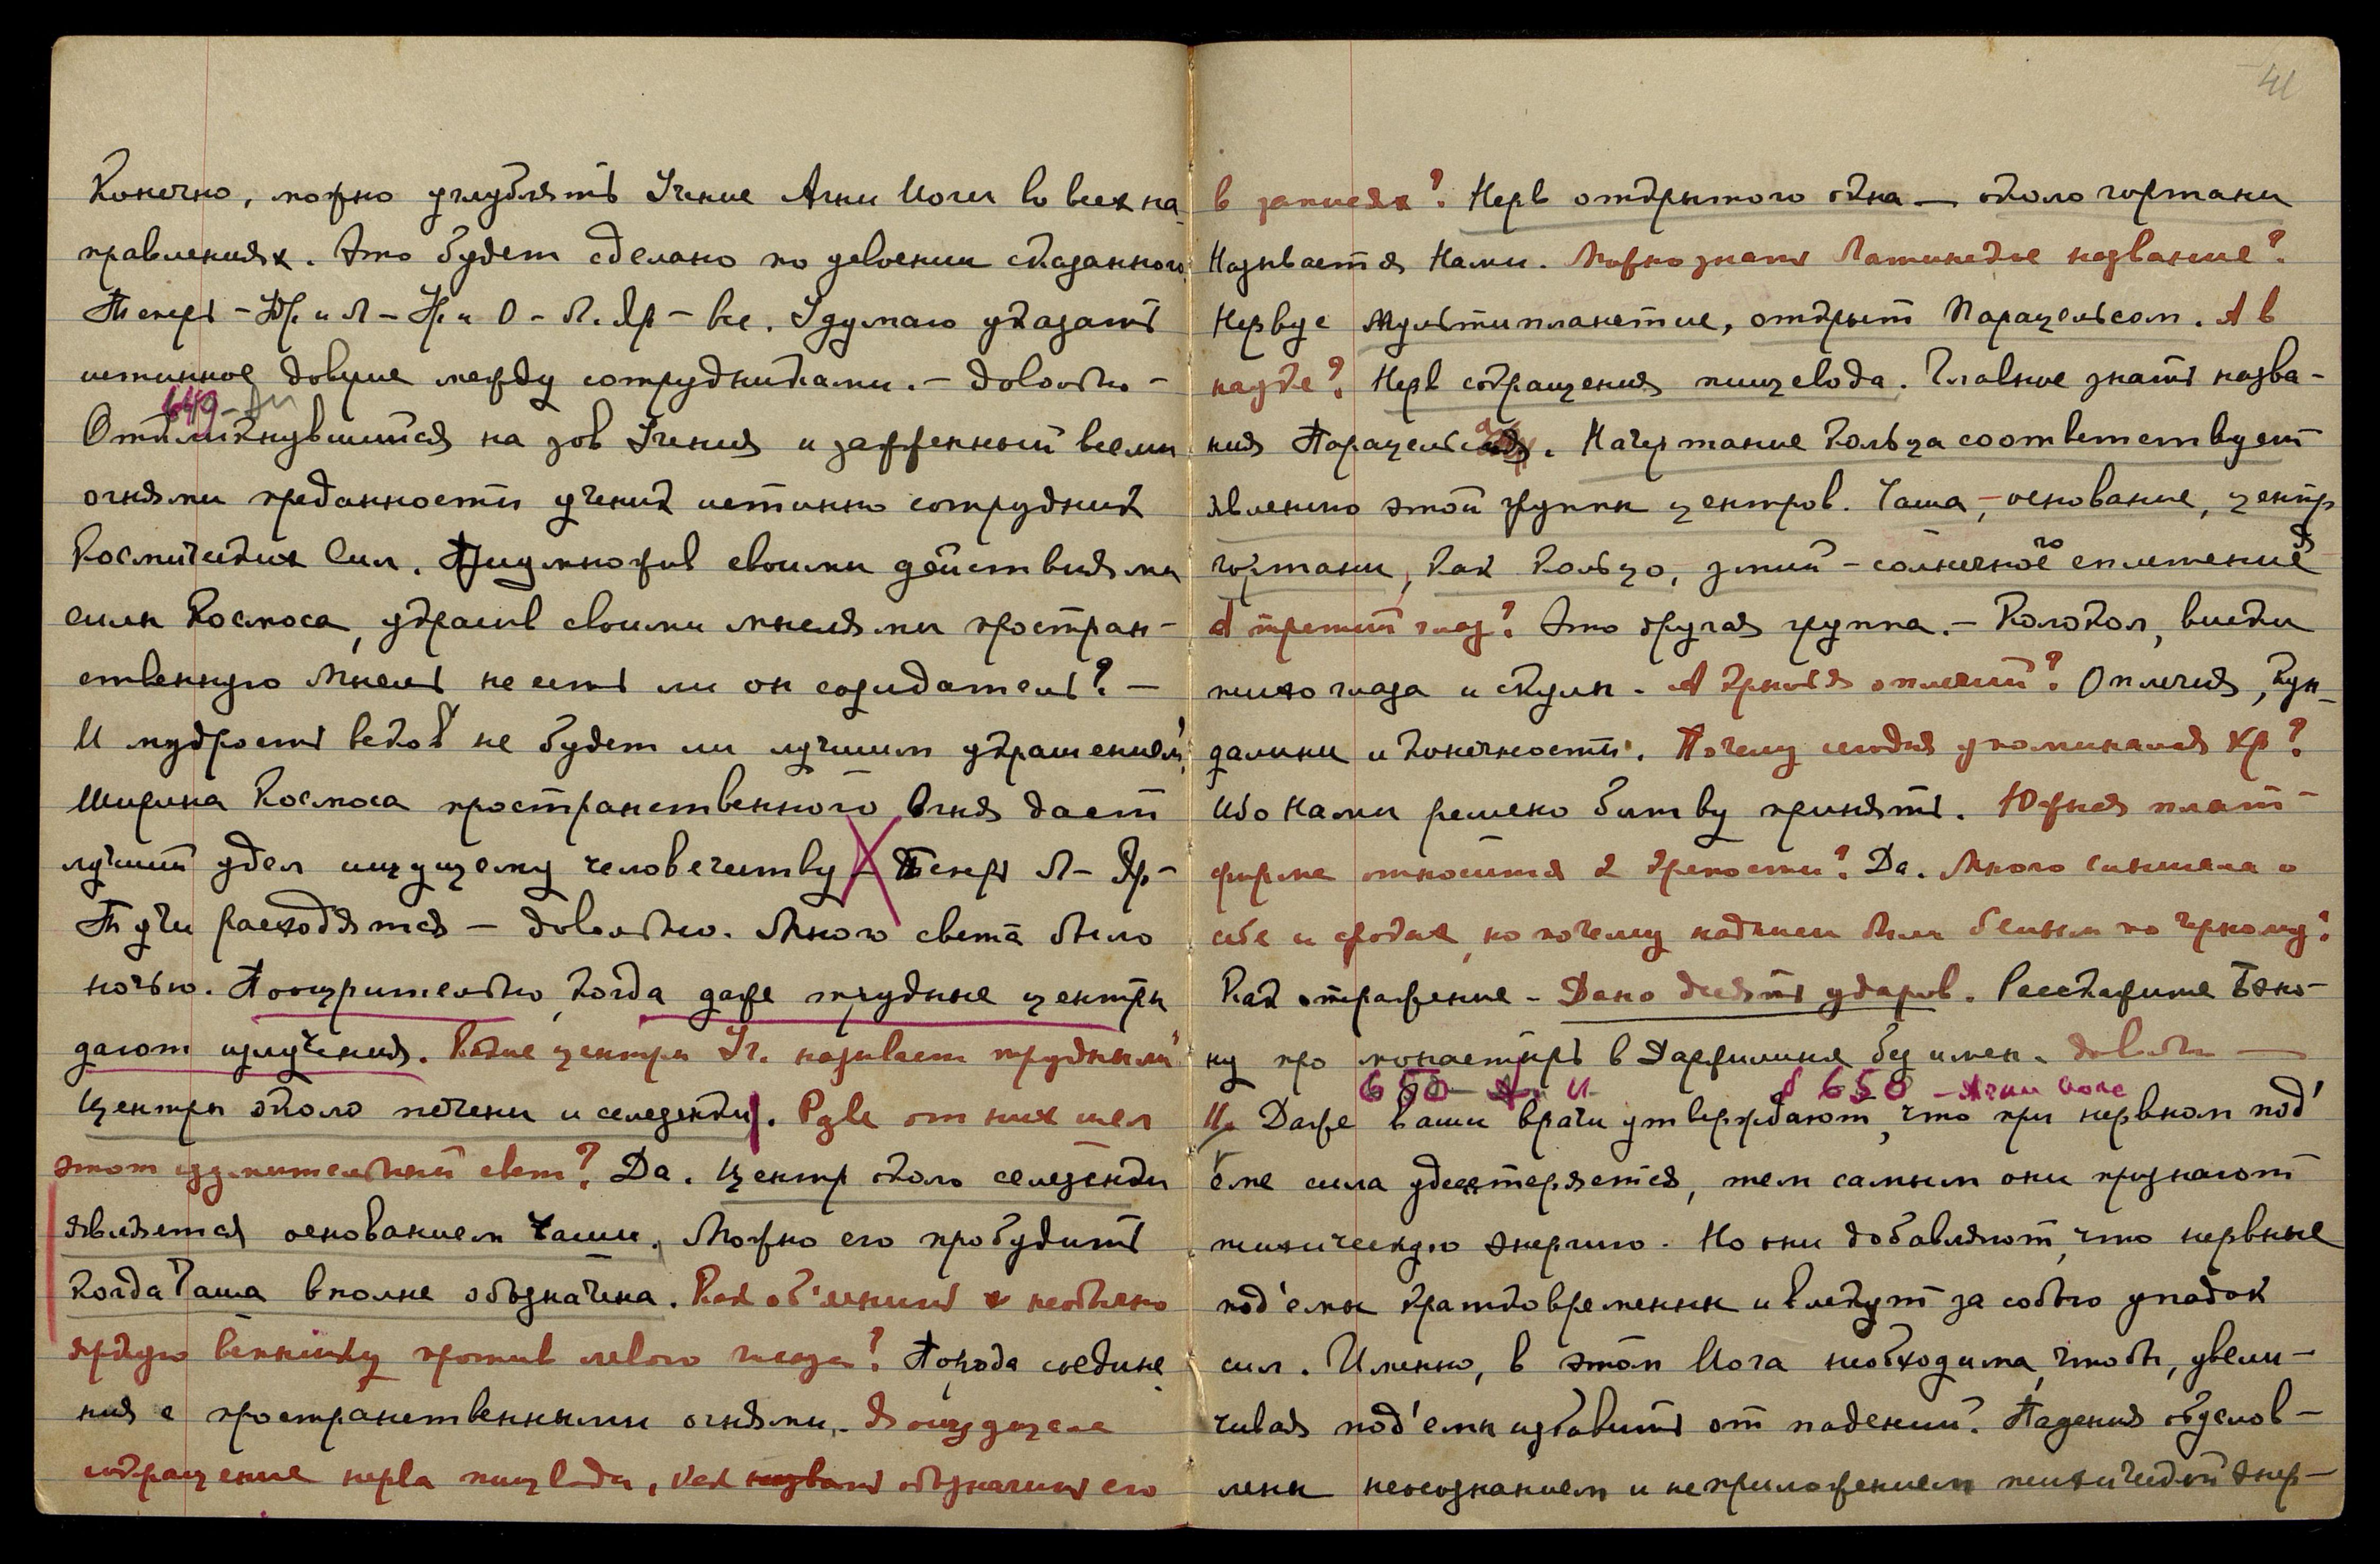 Конечно, можно углублять Учение Агни Йоги во всех на-
правлениях. Это будет сделано по усвоении сказанного
Теперь – Ур. и Л – Ур. и О – Л. Яр – все. Удумаю указать
истинное доверие между сотрудниками. – Довольно –
649
Откликнувшийся на зов Учения и зажженный всеми
огнями преданности ученик истинно сотрудник
Космических Сил. Приумножив своими действиями
силы Космоса, украсив своими мыслями простран-
ственную Мысль не есть ли он созидатель? –
И мудрость веков не будет ли лучшим украшением?
Ширина Космоса пространственного Огня дает
лучший удел ищущему человечеству – Теперь Л – Яр –
Тучи расходятся – довольно. Много света было
ночью. Поощрительно, когда даже трудные центры
дают излучения. Какие центры Уч. называет трудными?
Центры около печени и селезенки. Разве от них шел
этот изумительный свет? Да. Центр около селезенки
является основанием Чаши. Можно его пробудить
когда Чаша вполне обозначена. Как об'яснить необычно
яркую вспышку против левого глаза? Порода соедине
ния с пространственными огнями. Я ощущала
сокращение нерва пищевода, как назвать обозначить его
41
в записях? Нерв открытого окна – около гортани
Называется Нами. Можно знать Латинское название?
Нервус Мультипланетие, открыт Парацельсом. А в
науке? Нерв сокращения пищевода. Главное знать назва-
ния Парацельса. Начертание Кольца соответствует
явлению этой группы центров. Чаша, – основание, центр
гортани, как кольцо, змий – солнечного сплетения
А третий глаз? Это другая группа. – Колокол, виски
тихо глаза и скулы. А крылья оплечий? Оплечия, Кун-
далини и конечности. Почему сегодня упоминался Хр?
Ибо Нами решено битву принять. Южная плат-
форма относится к крепости? Да. Много слышала о
себе и сродах, но почему надписи были белым по черному?
Как отражение – Дано десять ударов. Расскажите Боко-
ну про монастырь в Дарджилинге без имен. Довольно –
650 – А. Й § 650 – Агни Йога
Ц. Даже ваши врачи утверждают, что при нервном под'
еме сила удесятеряется, тем самым они признают
психическую энергию. Но они добавляют, что нервные
под'емы кратковременны и влекут за собою упадок
сил. Именно, в этом Йога необходима, чтобы, увели-
чивая под'емы избавить от падений. Падения обуслов-
лены неосознанием и неприложением психической энер-